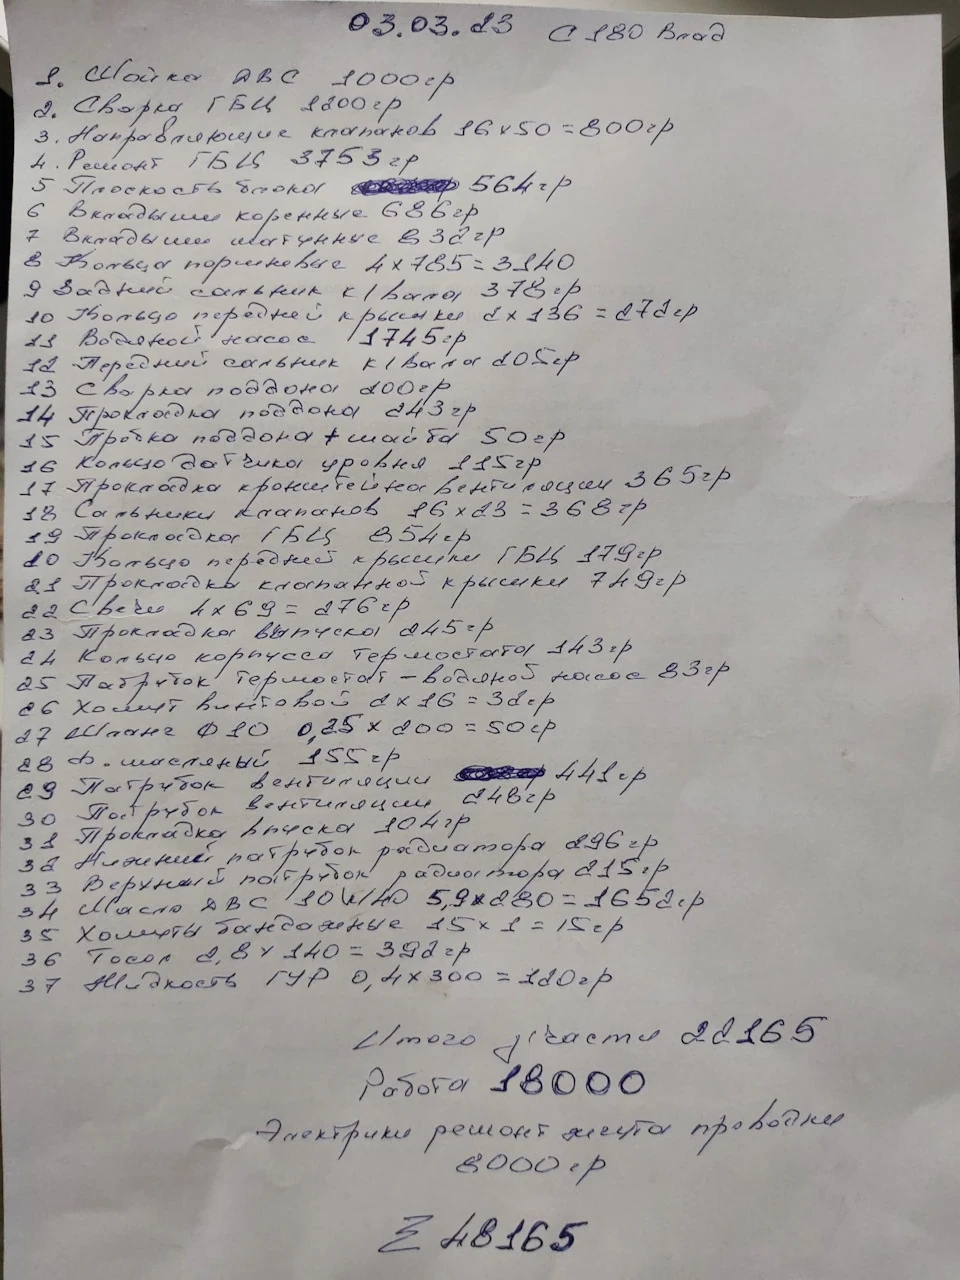 03.03.23 С180 Влад
1. Мойка ДВС 1000гр
2. Сварка ГБЦ 1200гр
3. Направляющие клапанов 16х50=800гр
4. Ремонт ГБЦ 3753гр
5 Плоскость блока 564гр
6 Вкладыши коренные 686гр
7 Вкладыши шатунные 832гр
8 Кольца поршневые 4х785=3140
9 Задний сальник к/вала 378гр
10 Кольцо передней крышки 2х136=272гр
11 Водяной насос 1745гр
12 Передний сальник к/вала 205гр
13 Сварка поддона 200гр
14 Прокладка поддона 243гр
15 Пробка поддона + шайба 50гр
16 Кольцо датчика уровня 115гр
17 Прокладка кронштейна вентиляции 365гр
18 Сальники клапанов 16х23=368гр
19 Прокладка ГБЦ 854гр
20 Кольцо передней крышки ГБЦ 179гр
21 Прокладка клапанной крышки 749гр
22 Свечи 4х69=276гр
23 Прокладка выпуска 245гр
24 Кольцо корпусса термостата 143гр
25 Патрубок термостат-водяной насос 83гр
26 Хомут винтовой 2х16=32гр
27 Шланг Ф10 0,25х200=50гр
28 Ф. масляный 155гр
29 Патрубок вентиляции 441гр
30 Потрубок вентиляции 248гр
31 Прокладка впуска 104гр
32 Нижний патрубок радиатора 296гр
33 Верхний патрубок радиатора 215гр
34 Масло ДВС 10W40 5,9х280=1652гр
35 Хомуты бандажные 15х1=15гр
36 Тосол 2,8х140=392гр
37 Жидкость ГУР 0,4х300=120гр
Итого з/части 22165
Работа 18000
Электрики ремонт жгута проводки
8000гр
Σ 48165